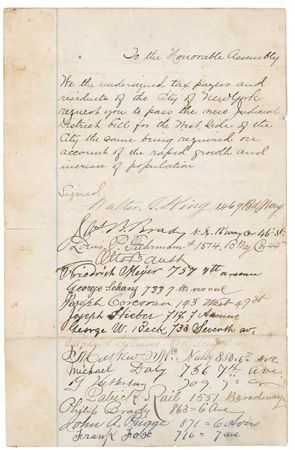 To the Honorable Assembly
We the undersigned tax payers and
residents of the City of New York
request you to pass the new Judicial
District bill for the West Side of the
City the same being required on
account of the rapid growth and
increase of population
Signed
Walter S. King 1469 Bdway
B. Brady
1574, B'Way & 44
Otto Bauth
Friedrich Meyer 757 7th avenue
George Schanz 733 7th avenue
Joseph Corcoran 193 West 49 St
Joseph Stieber 717 7 Avenue
George W. Beck 733 Seventh av.
Michael Daly 756 7th ave
Patrick Rail 1551 Broadway
Philip Brady 863 = 6 Ave
John A. Fugge 871 = 6
Frank Fox 716 = 7 ave